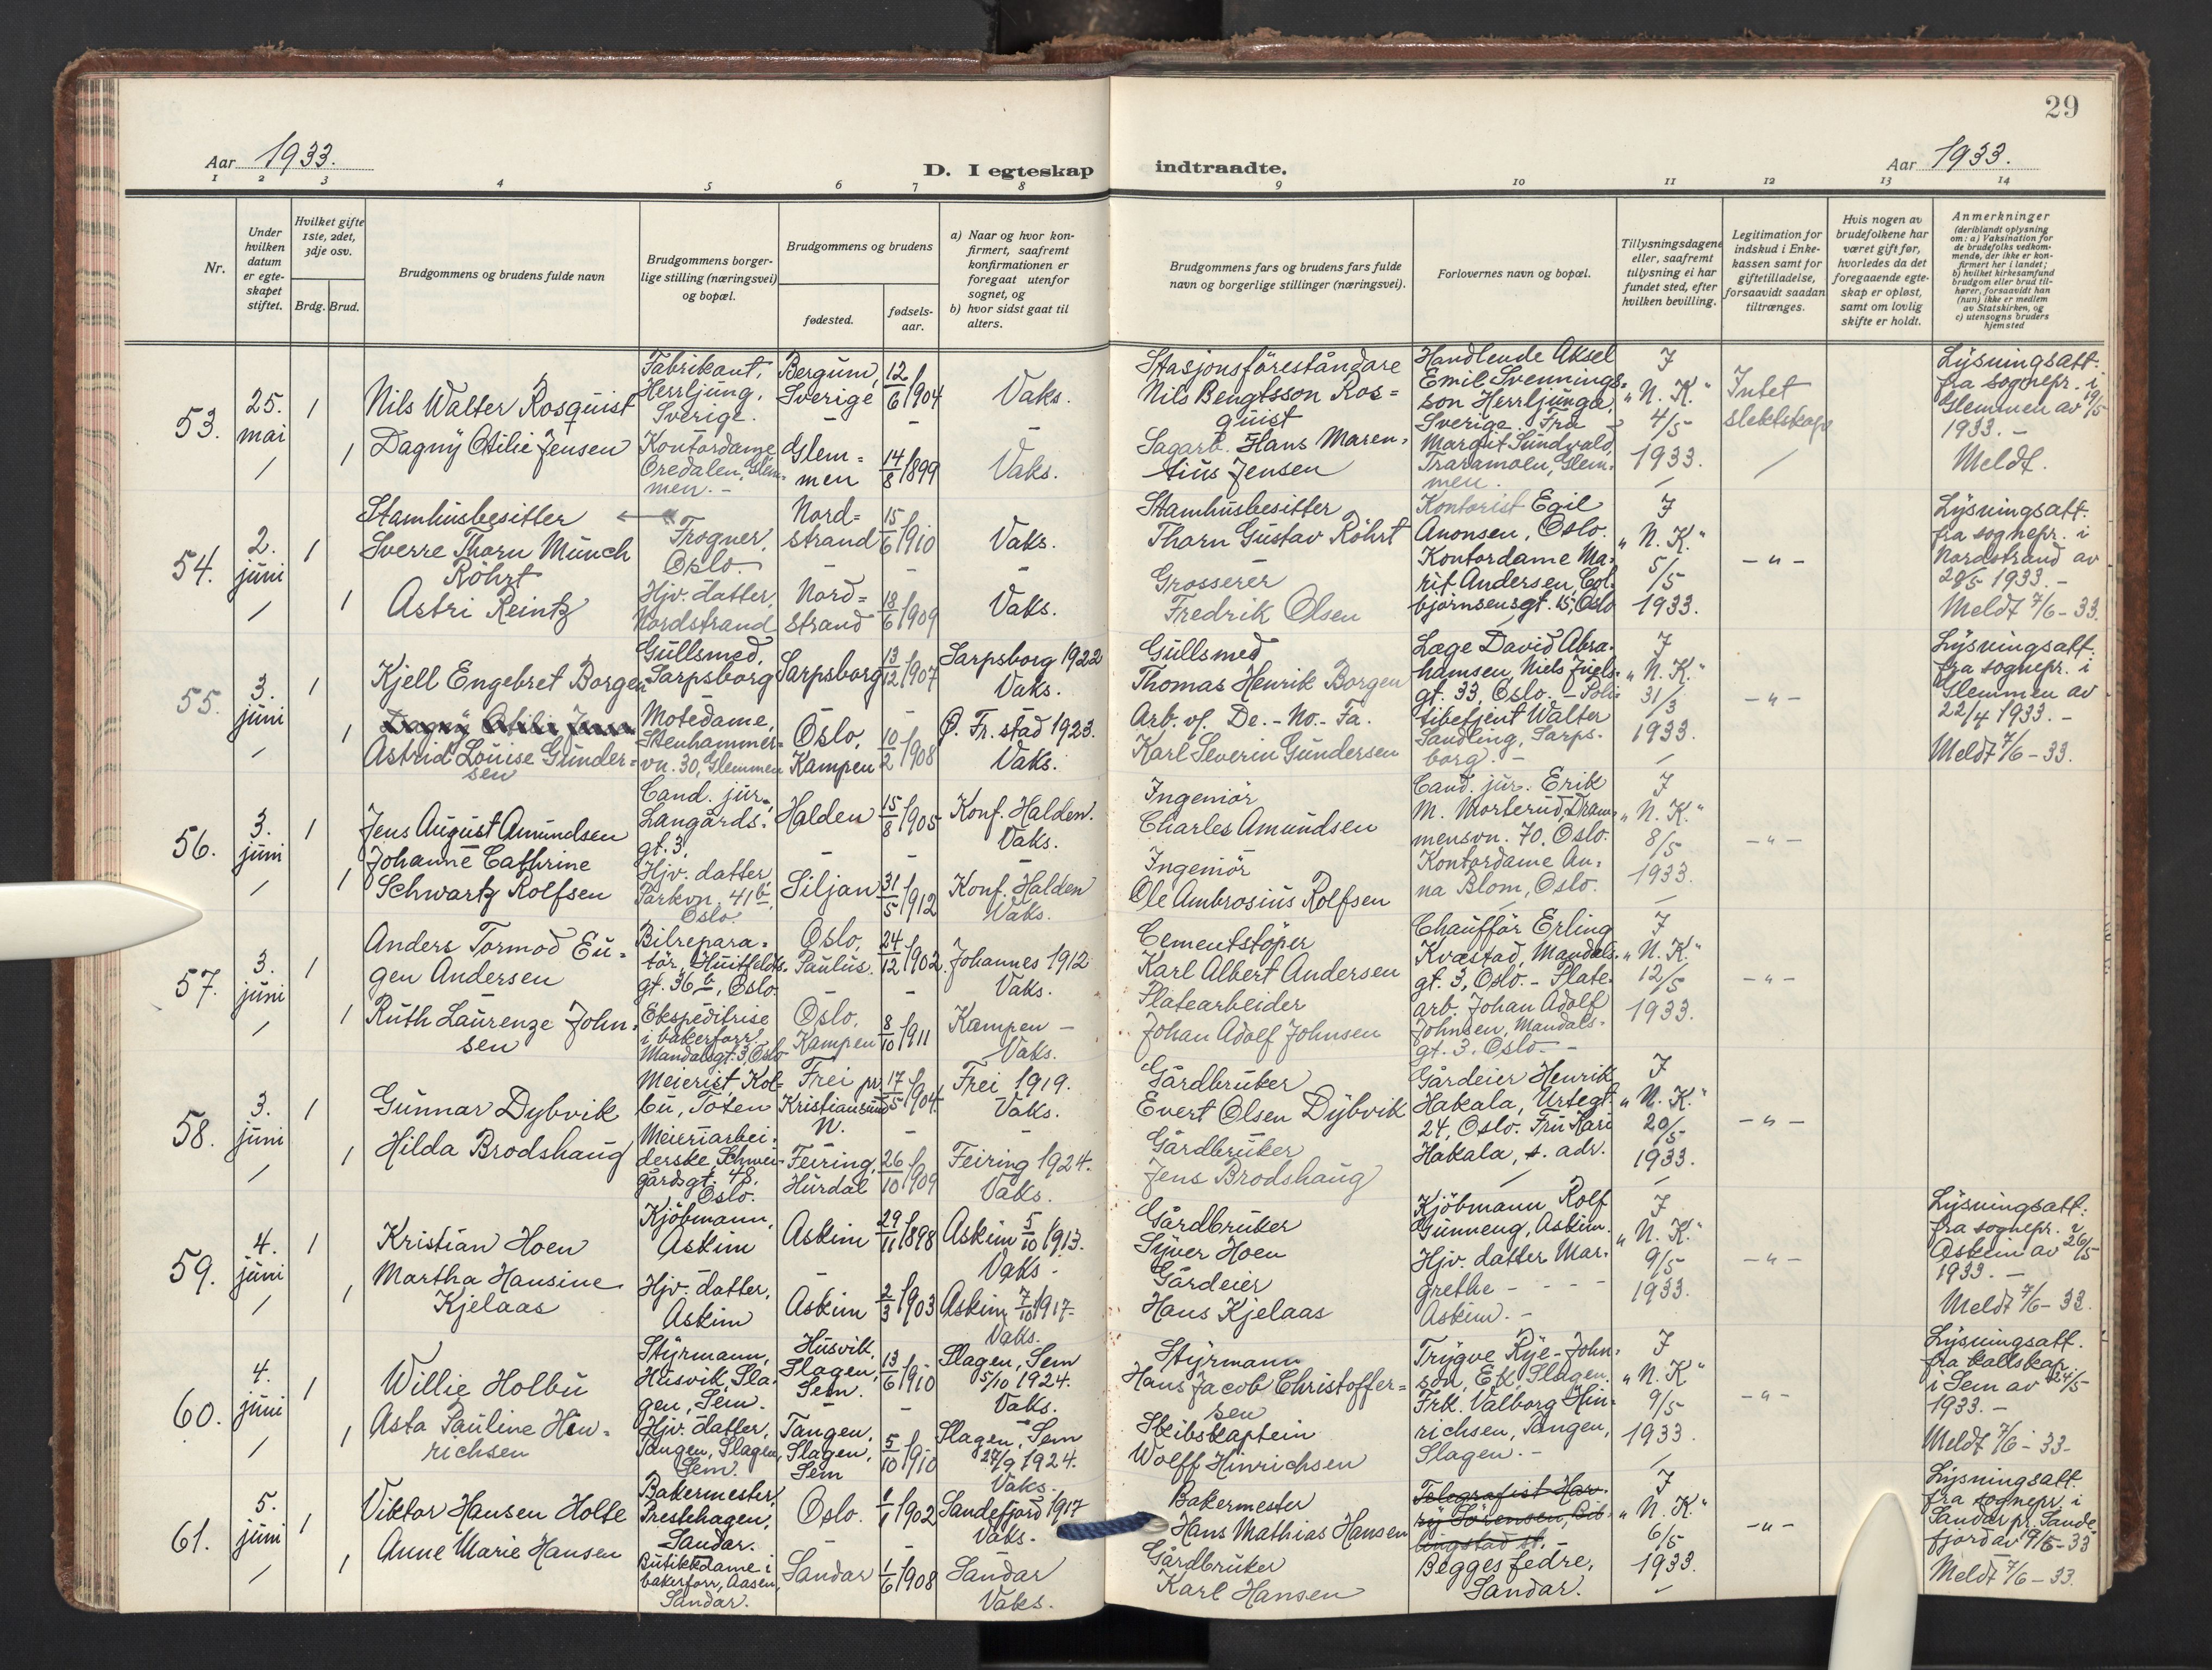 29
Aar 1933.
D. I egteskap
indtraadte.
Aar 1933.
1 2 3 4 5 6 7 8 9 10 11 12 13 14
Nr.
Under hvilken datum er egteskapet stiftet.
Hvilket gifte 1ste, 2det, 3dje osv.
Brdg. Brud.
Brudgommens og brudens fulde navn
Brudgommens borgerlige stilling (næringsvei) og bopæl.
Brudgommens og brudens
fødested.
fødselsaar.
a) Naar og hvor konfirmert, saafremt konfirmationen er foregaat utenfor sognet, og
b) hvor sidst gaat til alters.
Brudgommens fars og brudens fars fulde navn og borgerlige stillinger (næringsvei).
Forlovernes navn og bopæl.
Tillysningsdagene eller, saafremt tillysning ei har fundet sted, efter hvilken bevilling.
Legitimation for indskud i Enkekassen samt for giftetilladelse, forsaavidt saadan tiltrænges.
Hvis nogen av brudefolkene har været gift før, hvorledes da det foregaaende egteskap er opløst, samt om lovlig skifte er holdt.
Anmerkninger (deriblandt oplysning om: a) Vaksination for de brudefolks vedkommende, der ikke er konfirmert her i landet; b) hvilket kirkesamfund brudgom eller brud tilhører, forsaavidt han (hun) ikke er medlem av Statskirken, og c) utensogns bruders hjemsted
53.
25. mai
1
Nils Walter Rosquist
Fabrikant, Herrljung, Sverige.
Bergum, Sverige
12/6 1904
Vaks.
Stasjonsföreståndare
Nils Bengtsson Rosquist
Handlende Aksel Emil Svenningsson Herrljunga, Sverige. Frå
I "N. K." 4/5 1933.
Intet slektskap
Lysningsatt. fra sognepr. i Glemmen av 19/5 1933. -
Meldt.
1
Dagny Otilie Jensen
Kontordame Oredalen, Glemmen. -
Glemmen
14/8 1899
Vaks.
Sagarb. Hans Marentius Jensen
Margit Sundvald, Traramoln, Glemmen.
54.
2. juni
1
Stamhusbesitter
Sverre Thorn Münch Röhrt
Frogner, Oslo.
Nordstrand
15/6 1910
Vaks.
Stamhusbesitter
Thorn Gustav Röhrt
Kontorist Egil Anonsen, Oslo.
I "N. K." 5/5 1933.
- " -
Lysningsatt. fra sognepr. i Nordstrand av 20/5 1933. -
Meldt 7/6 - 33.
1
Astri Reintz
Hjv. datter, Nordstrand
Nordstrand
18/6 1909
Vaks.
Grosserer
Fredrik Olsen
Kontordame Marit Andersen, Colbjörnsensgt. 15, Oslo
55.
3. juni
1
Kjell Engebret Borgen
Gullsmed, Sarpsborg
Sarpsborg
13/12 1907
Sarpsborg 1922
Vaks.
Gullsmed
Thomas Henrik Borgen
Læge David Abrahamsen, Niels Juelsgt. 33, Oslo. - Politibetjent Walter Sandling, Sarpsborg. -
I "N. K." 31/3 1933.
- " -
Lysningsatt. fra sognepr. i Glemmen av 22/4 1933. -
Meldt 7/6 - 33.
1
Dagny Otilie Jensen
Astrid Louise Gundersen
Motedame, Stenhammervn. 30, Glemmen
Oslo, Kampen
10/2 1908
Ø. Fr.stad 1923.
Vaks.
Arb. v/. De.-No.-Fa.
Karl Severin Gundersen
56.
3. juni
1
Jens August Amundsen
Cand. jur., Langårdsgt. 3.
Halden
15/8 1905
Konf. Halden.
Vaks.
Ingeniör
Charles Amundsen
Cand. jur. Erik M. Morterud, Drammensvn. 70, Oslo.
I "N. K." 8/5 1933.
- " -
1
Johanne Cathrine Schwartz Rolfsen
Hjv. datter, Parkvn. 41b, Oslo.
Siljan
31/5 1912
Konf. Halden
Vaks.
Ingeniör
Ole Ambrosius Rolfsen
Kontordame Anna Blom, Oslo.
57.
3. juni
1
Anders Tormod Eugen Andersen
Bilreparatör, Huitfeldtsgt. 36b, Oslo.
Oslo, Paulus.
24/12 1902.
Johannes 1912
Vaks.
Cementstöper
Karl Albert Andersen
Chaufför Erling Kvæstad, Mandalsgt. 3, Oslo. - Platearb. Johan Adolf Johnsen, Mandalsgt. 3. Oslo. -
I "N. K." 12/5 1933.
- " -
1
Ruth Laurenze Johnsen
Ekspeditrise i bakerforr. Mandalsgt. 3 Oslo
Oslo, Kampen
8/10 1911
Kampen -
Vaks.
Platearbeider
Johan Adolf Johnsen
58.
3. juni
1
Gunnar Dybvik
Meierist Kolbu, Toten
Frei pr. Kristiansund N.
17/5 1904
Frei 1919.
Vaks.
Gårdbruker
Evert Olsen Dybvik
Gårdeier Henrik Hakala, Urtegt. 24, Oslo. Fru Kari Hakala, s. adr.
I "N. K." 20/5 1933.
- " -
1
Hilda Brodshaug
Meieriarbeiderske, Schweigårdsgt. 48, Oslo.
Feiring, Hurdal
26/10 1909
Feiring 1924.
Vaks.
Gårdbruker
Jens Brodshaug
59.
4. juni
1
Kristian Hoen
Kjöbmann, Askim
Askim
29/11 1898
Askim 5/10 1913.
Vaks.
Gårdbruker
Syver Hoen
Kjöbmann Rolf Gunneng, Askim.
I "N. K." 9/5 1933.
- " -
Lysningsatt. fra sognepr. i Askim av 26/5 1933. -
Meldt 7/6 - 33.
1
Martha Hansine Kjelaas
Hjv. datter, Askim
Askim
2/3 1903
Askim 7/10 1917.
Vaks.
Gårdeier
Hans Kjelaas
Hjv. datter Margrethe - - - - Askim. -
60.
4. juni
1
Willie Holbu
Styrmann, Husvik, Slagen, Sem.
Husvik, Slagen, Sem.
13/6 1910
Slagen, Sem 5/10 1924.
Vaks.
Styrmann
Hans Jacob Christoffersen
Trygve Rye-Johnson, Ek, Slagen.
I "N. K" 9/5 1933.
- " -
Lysningsatt. fra kallskap. i Sem av 24/5 1933. -
Meldt 7/6 - 33.
1
Asta Pauline Hinrichsen
Hjv. datter, Tangen, Slagen, Sem.
Tangen, Slagen, Sem
5/10 1910
Slagen, Sem 27/9 1924.
Vaks.
Skibskaptein
Wolff Hinrichsen
Frk. Valborg Hinrichsen, Tangen, Slagen. -
61.
5. juni
1
Viktor Hansen Holte
Bakermester, Prestehagen, Sandar.
Oslo.
1/1 1902
Sandefjord 1917
Vaks.
Bakermester
Hans Mathias Hansen
Telegrafist Harry Sörensen,
Begges fedre, Sandar.
I "N. K." 6/5 1933.
- " -
Lysningsatt. fra sognepr. i Sandar pr. Sandefjord av 19/5 - 33
Meldt 7/6 - 33.
1
Anne Marie Hansen
Butikkdame i bakerforr, Aasen, Sandar.
Sandar
1/6 1908
Sandar
Vaks.
Gårdbruker
Karl Hansen